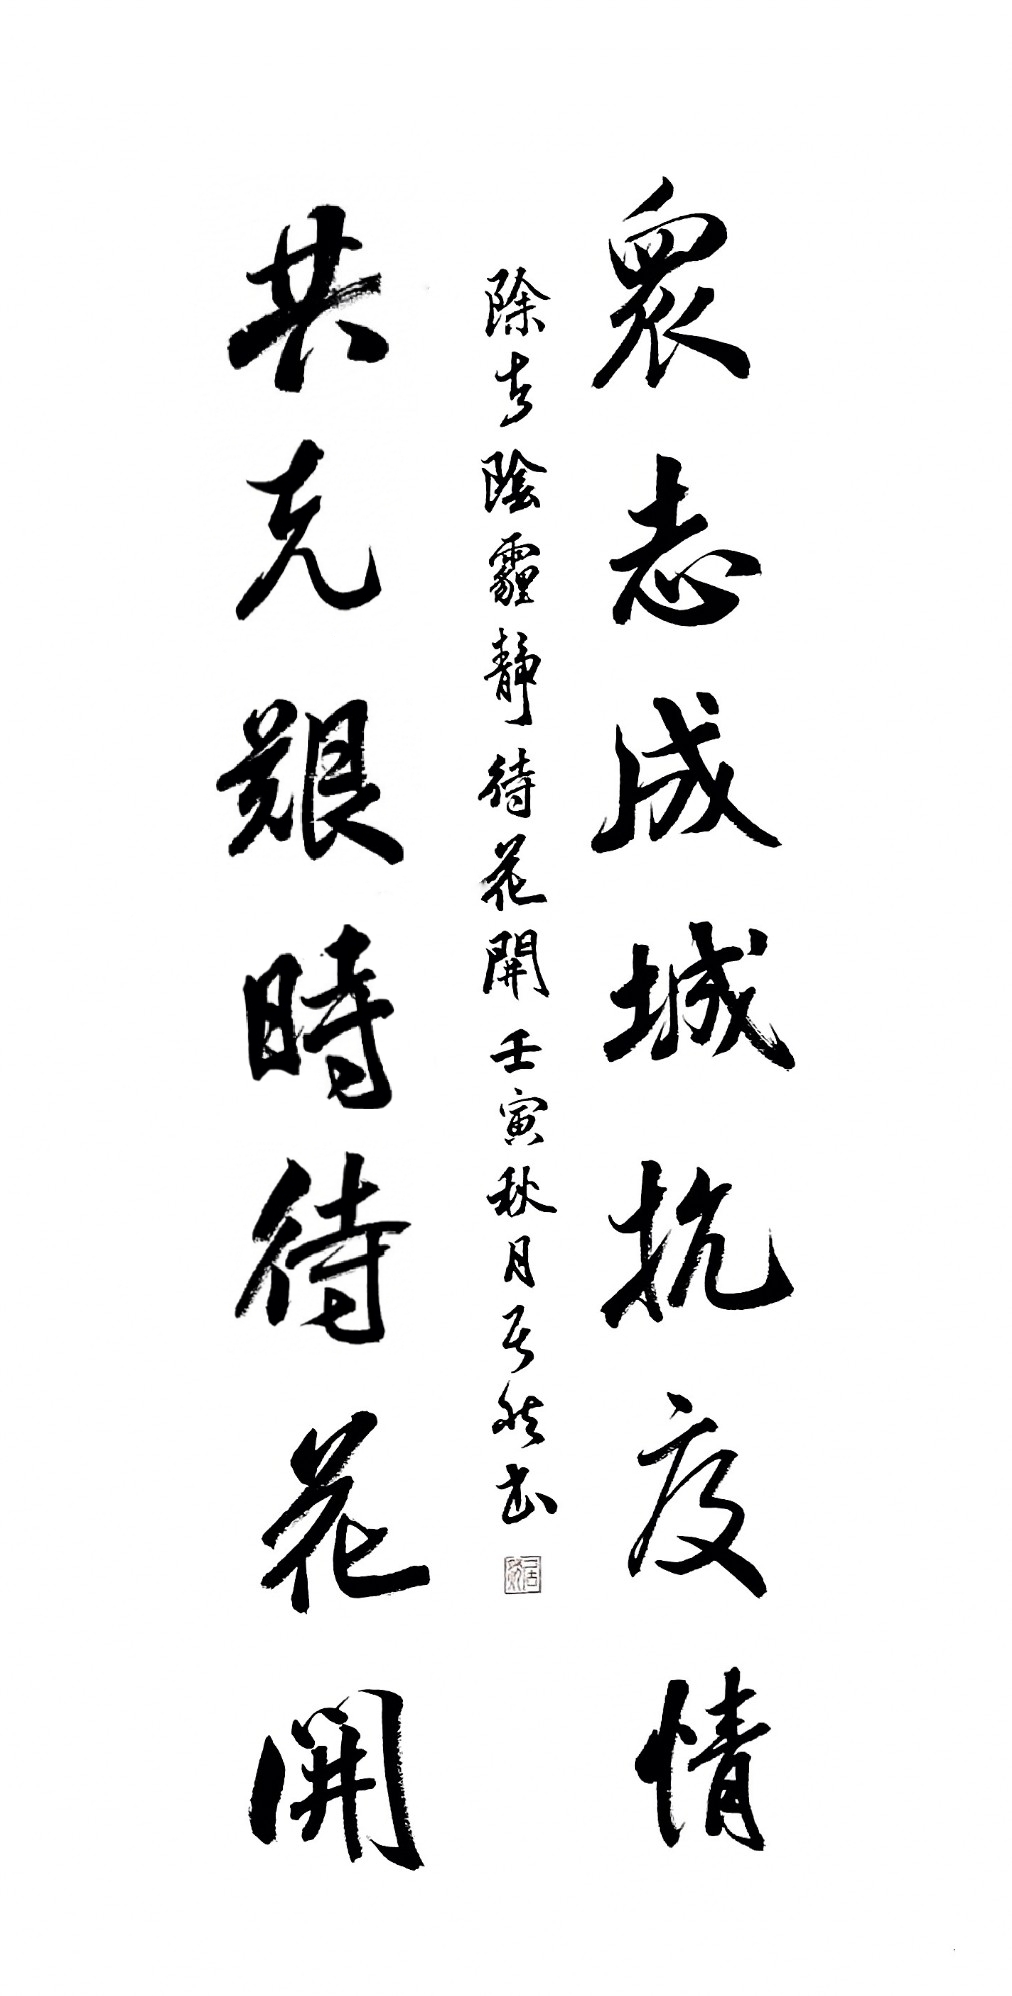 眾志成城抗疫情
除去陰霾靜待花開壬寅秋月居然書
共克艱時待花開
居然